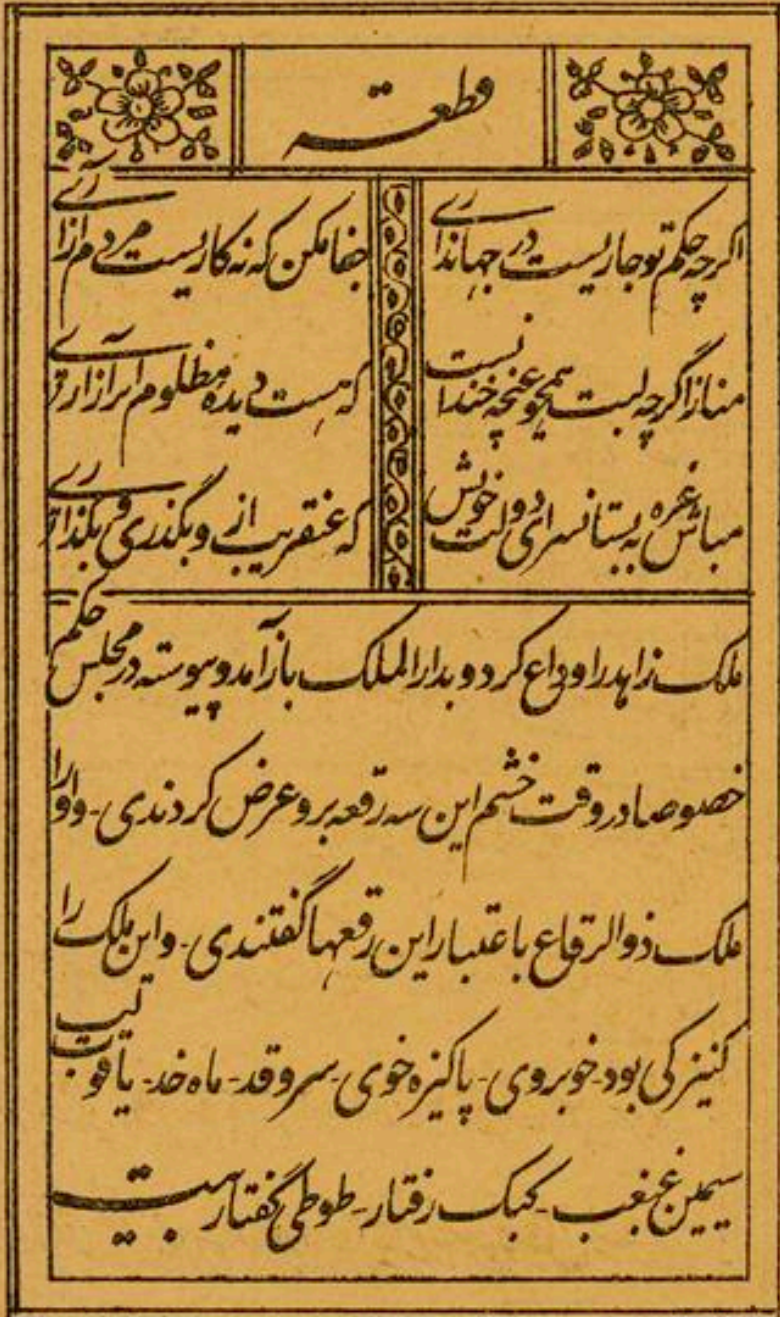 قطعه
اگرچه حکم تو جاریست در جهانداری جفا مکن که نه کاریست مردم آزاری
مناز اگرچه لبت همچو غنچه خندانست که هست دیده مظلوم ابر آزاری
مباش غره به بستانسرای دولت خویش که عنقریب از و بگذری و بگذاری
ملک زاهد را وداع کرد و بدار الملک باز آمد و پیوسته در مجلس حکم
خصوصا در وقت خشم این سه رقعه برو عرض کردندی - و او را
ملک ذو الرقاع باعتبار این رقعها گفتندی - و این ملک را
کنیزکی بود - خوبروی - پاکیزه خوی - سرو قد - ماه خد - یاقوت لب
سیمین غبغب - کبک رفتار - طوطی گفتار بیت